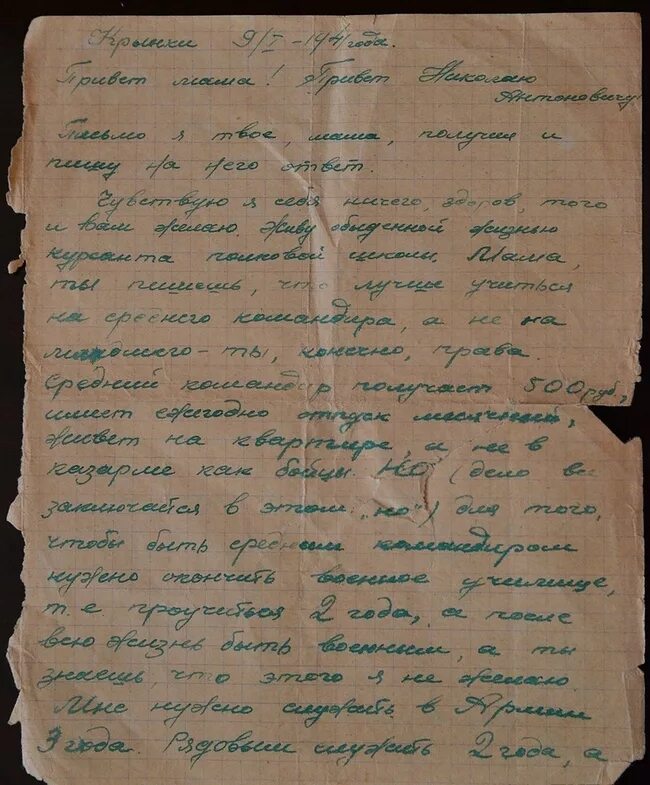 Крынки 9/I-1941 года.
Привет мама! Привет Николаю
Антоновичу
Письмо я твое, мама, получил и
пишу на него ответ.
Чувствую я себя ничего, здоров, того
и вам желаю. Живу обыденной жизнью
курсанта полковой школы. Мама,
ты пишешь, что лучше учиться
на среднего командира, а не на
младшего - ты, конечно, права.
Средний командир получает 500 руб.,
имеет ежегодно отпуск месячный,
живет на квартире, а не в
казарме как бойцы. НО (дело все
заключайся в этом "но") для того,
чтобы быть средним командиром
нужно окончить военное училище,
т.е проучиться 2 года, а после
всю жизнь быть военным, а ты
знаешь, что этого я не желаю.
Мне нужно служить в Армии
3 года. Рядовым служить 2 года, а